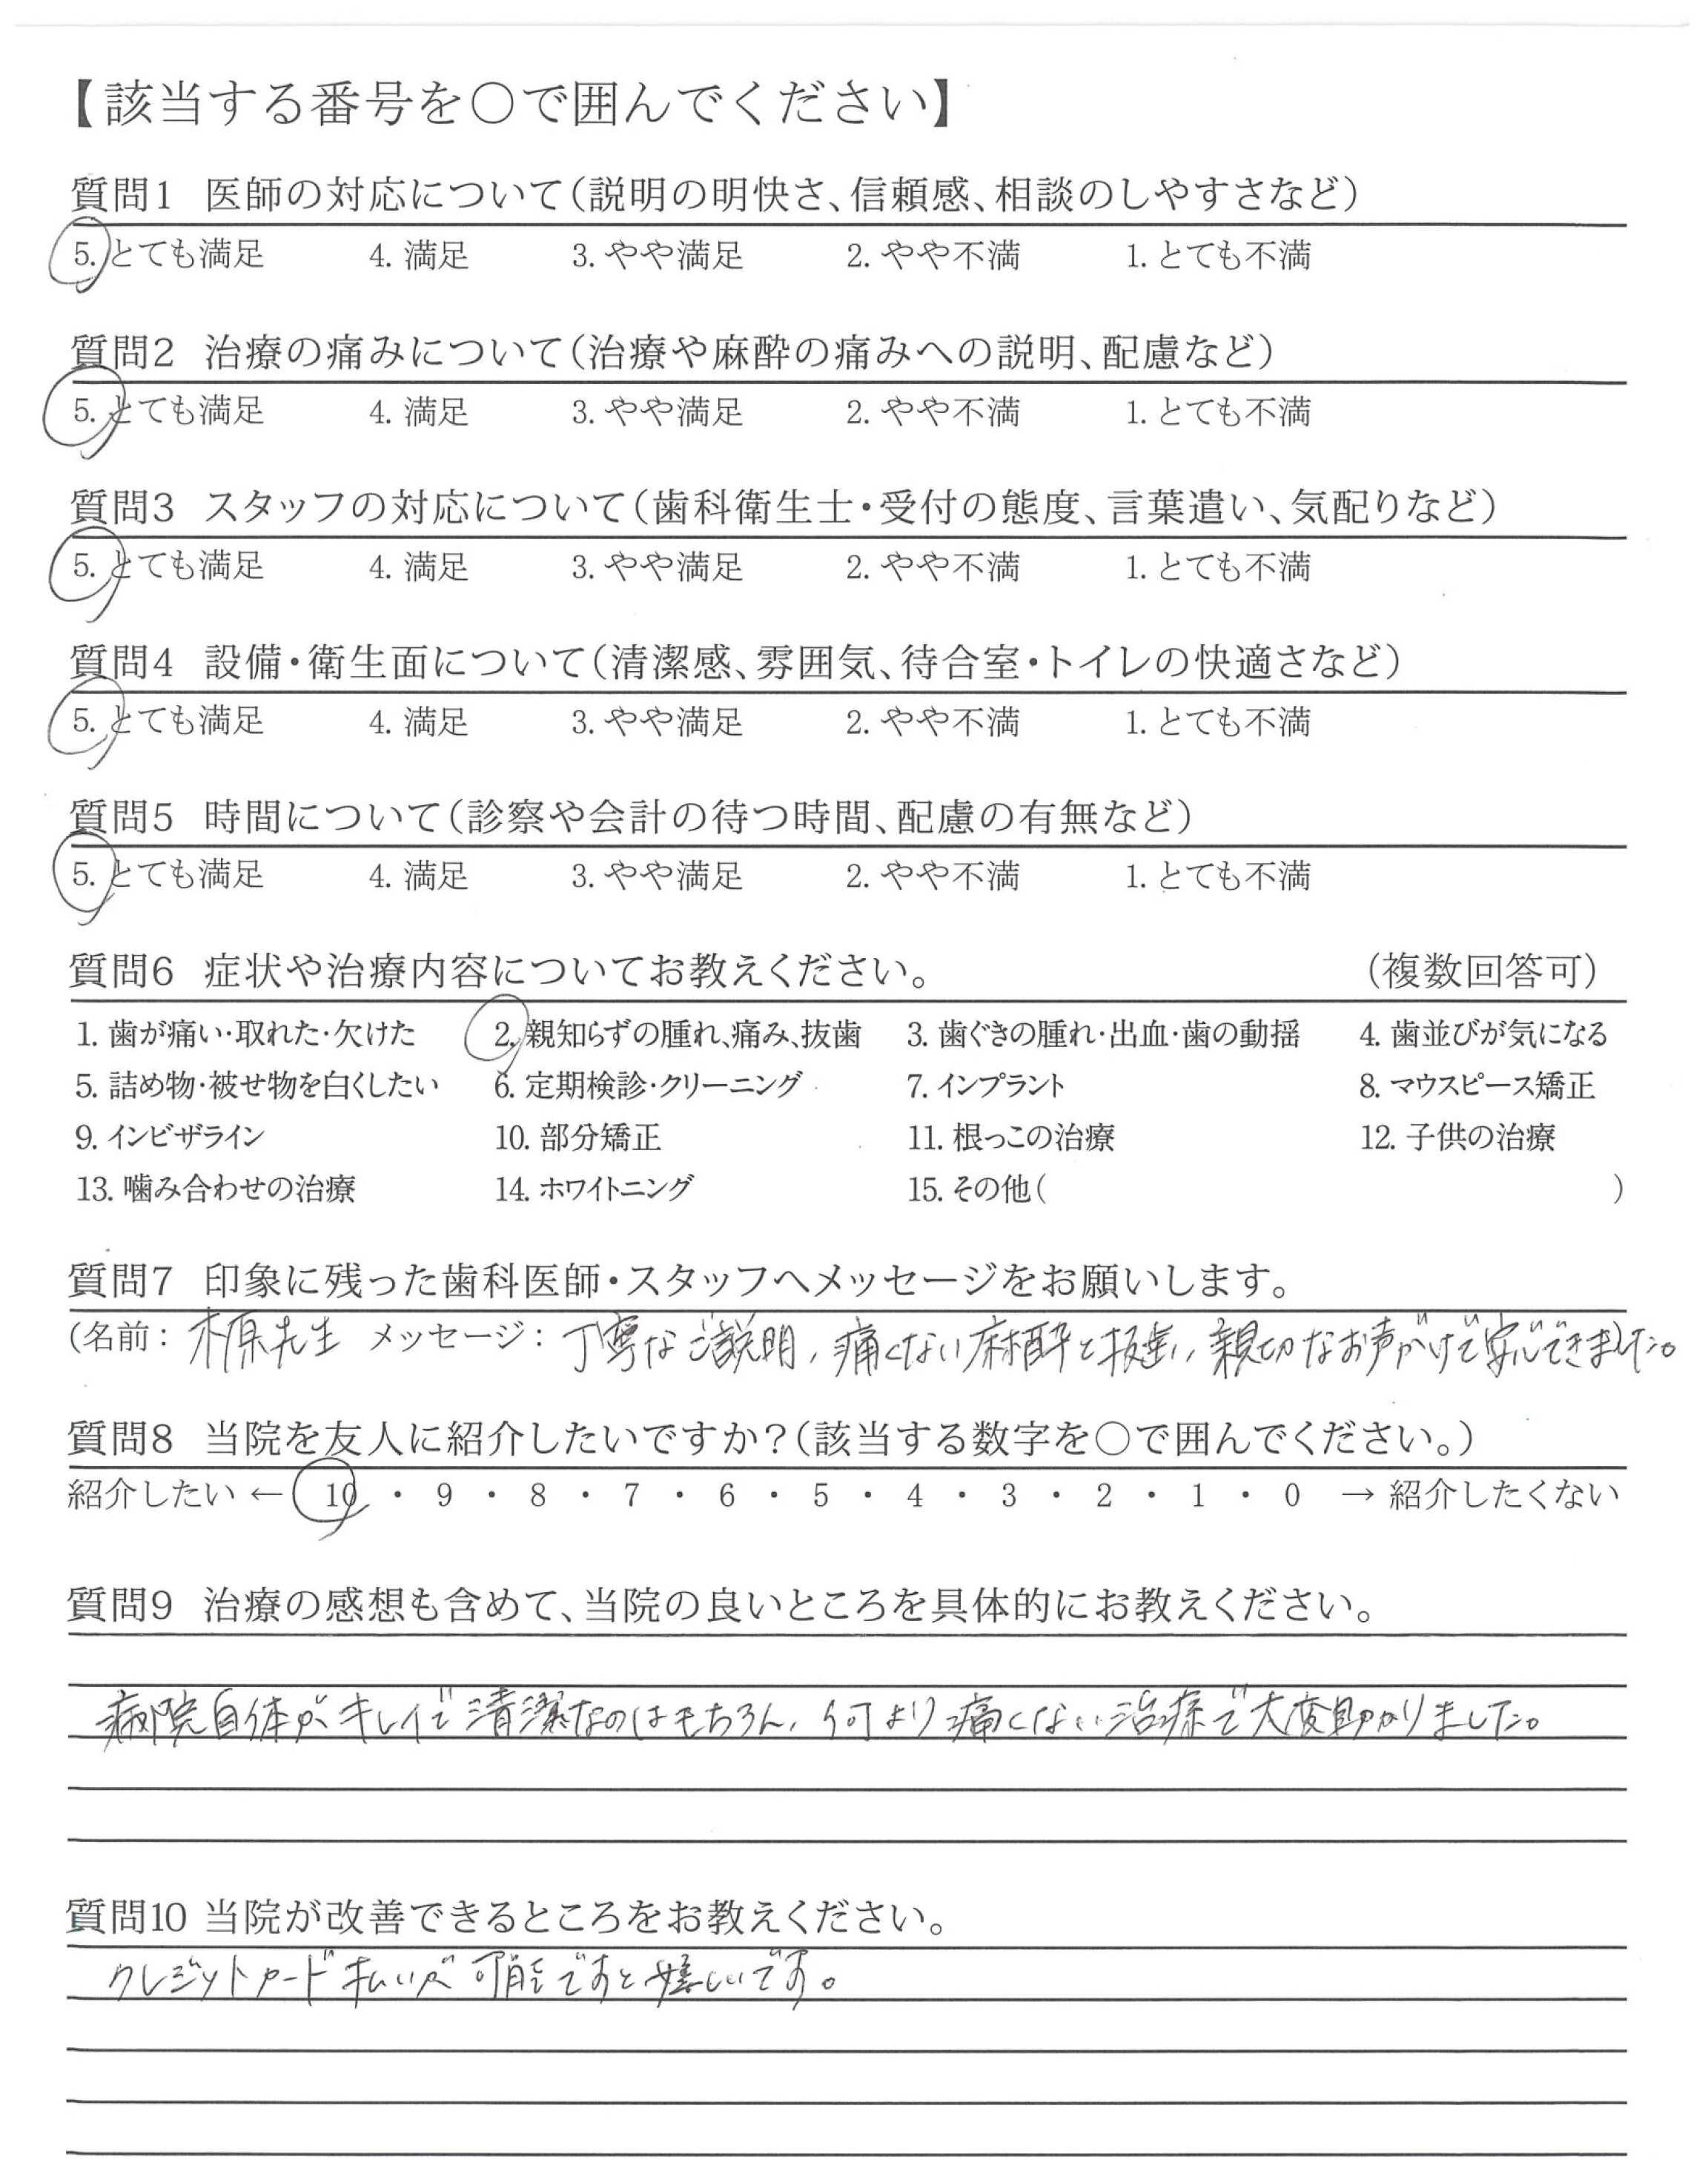 【該当する番号を○で囲んでください】
質問1 医師の対応について(説明の明快さ、信頼感、相談のしやすさなど)
5. とても満足 4. 満足 3. やや満足 2. やや不満 1. とても不満
質問2 治療の痛みについて(治療や麻酔の痛みへの説明、配慮など)
5. とても満足 4. 満足 3. やや満足 2. やや不満 1. とても不満
質問3 スタッフの対応について(歯科衛生士・受付の態度、言葉遣い、気配りなど)
5. とても満足 4. 満足 3. やや満足 2. やや不満 1. とても不満
質問4 設備・衛生面について(清潔感、雰囲気、待合室・トイレの快適さなど)
5. とても満足 4. 満足 3. やや満足 2. やや不満 1. とても不満
質問5 時間について(診察や会計の待つ時間、配慮の有無など)
5. とても満足 4. 満足 3. やや満足 2. やや不満 1. とても不満
質問6 症状や治療内容についてお教えください。 (複数回答可)
1. 歯が痛い・取れた・欠けた 2. 親知らずの腫れ、痛み、抜歯 3. 歯ぐきの腫れ・出血・歯の動揺 4. 歯並びが気になる
5. 詰め物・被せ物を白くしたい 6. 定期検診・クリーニング 7. インプラント 8. マウスピース矯正
9. インビザライン 10. 部分矯正 11. 根っこの治療 12. 子供の治療
13. 噛み合わせの治療 14. ホワイトニング 15. その他( )
質問7 印象に残った歯科医師・スタッフへメッセージをお願いします。
(名前: 木原先生 メッセージ: 丁寧なご説明、痛くない麻酔と抜歯、親切なお声がけで安心できました。
質問8 当院を友人に紹介したいですか?(該当する数字を○で囲んでください。)
紹介したい ← 10 ・ 9 ・ 8 ・ 7 ・ 6 ・ 5 ・ 4 ・ 3 ・ 2 ・ 1 ・ 0 → 紹介したくない
質問9 治療の感想も含めて、当院の良いところを具体的にお教えください。
病院自体がキレイで清潔なのはもちろん、何より痛くない治療で大変助かりました。
質問10 当院が改善できるところをお教えください。
クレジットカード払いが可能ですと嬉しいです。